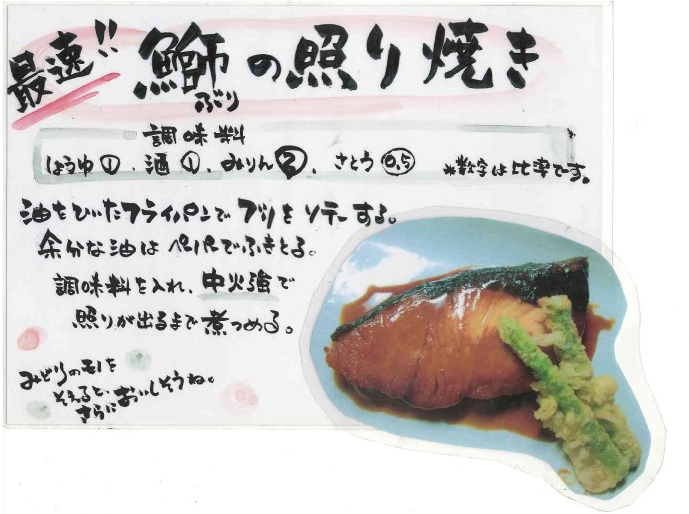 最速!!
鰤の照り焼き
ぶり
調味料
しょうゆ①、酒①、みりん②、さとう0.5 *数字は比率です。
油をひいたフライパンでブリをソテーする。
余分な油はペーパーでふきとる。
調味料を入れ、中火強で
照りが出るまで煮つめる。
みどりのモノを
そえると、
さらにおいしそうね。